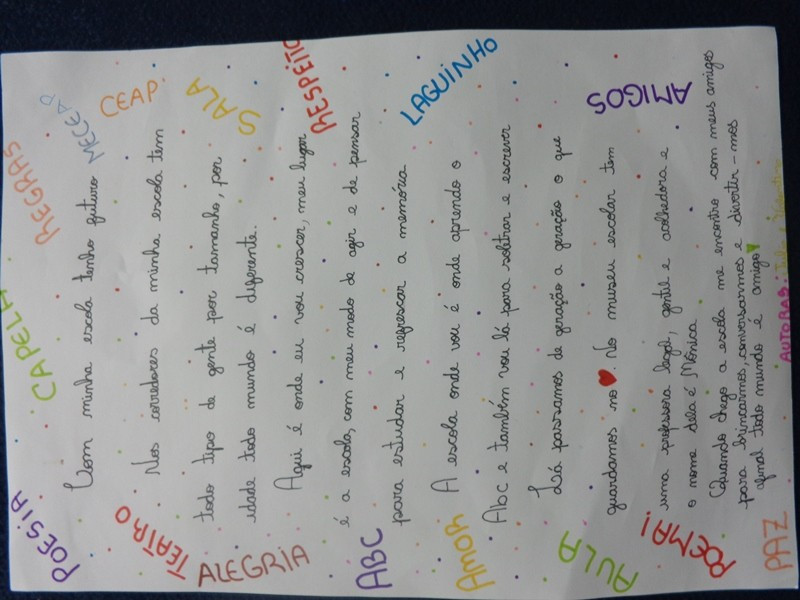 POESIA
CAPELA
REGRAS
MECEAP
CEAP
SALA
RESPEITO
LAGUINHO
AMIGOS
Com minha escola tenho futuro
Nos corredores da minha escola tem
todo tipo de gente por tamanho, por
idade todo mundo é diferente.
Aqui é onde eu vou crescer, meu lugar
é a escola, com meu modo de agir e de pensar
para estudar e refrescar a memória
A escola onde vou é onde aprendo o
Abc e também vou lá para soletrar e escrever
Lá passamos de geração a geração o que
guardamos no ❤. No museu escolar tem
uma professora legal, gentil e acolhedora e
o nome dela é Mônica
Quando chego a escola me encontro com meus amigos
para brincarmos, conversarmos e divertir-mos
afinal todo mundo é amigo
TEATRO
ALEGRIA
ABC
AMOR
AULA
POEMA!
PAZ
AUTORAS: